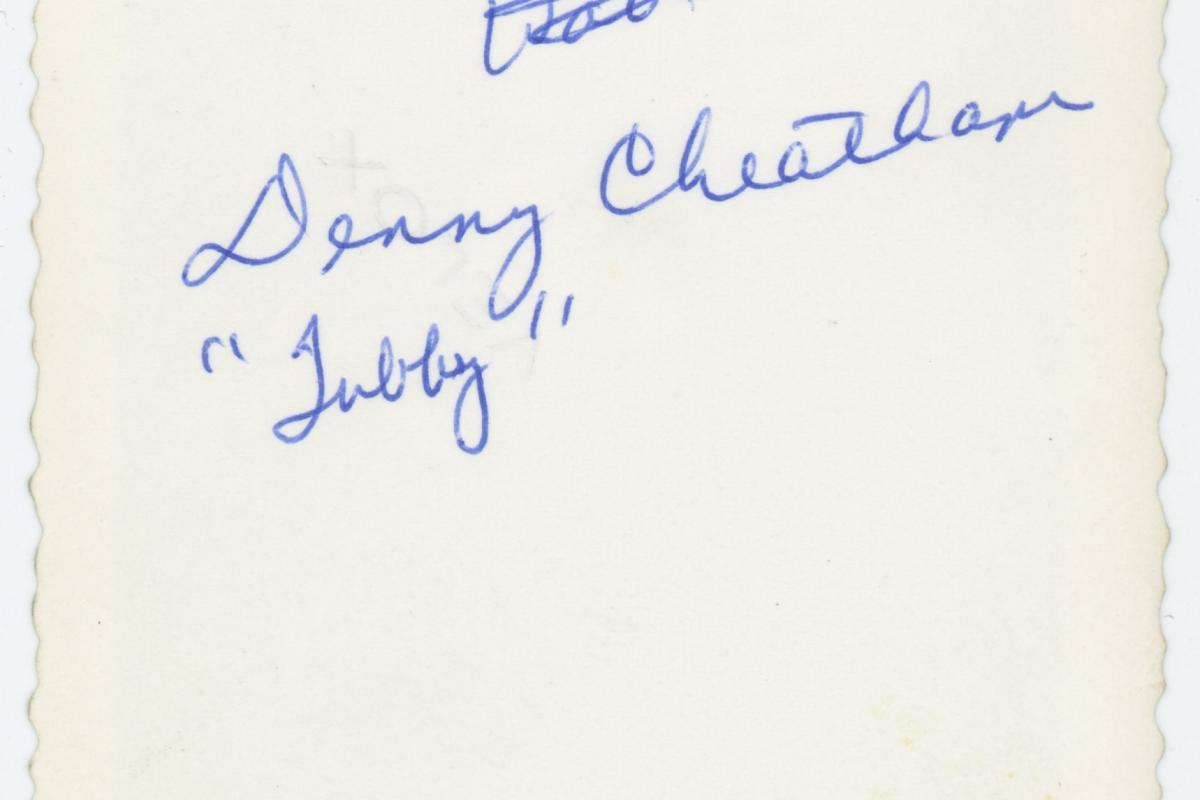 Denny Cheatham
"Tubby"